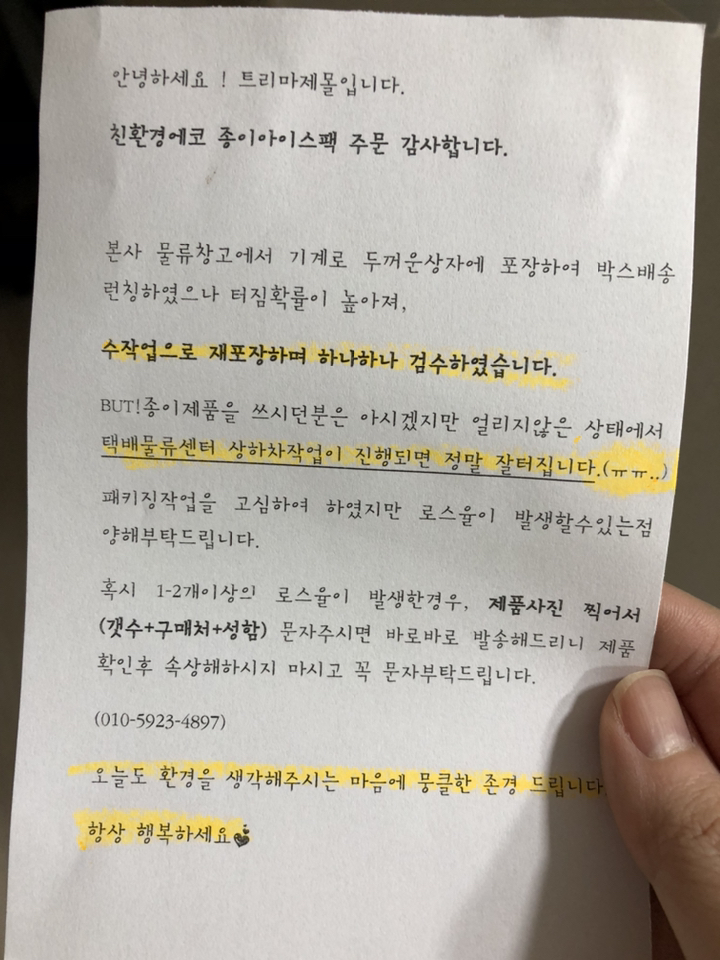 안녕하세요 ! 트리마제몰입니다.
친환경에코 종이아이스팩 주문 감사합니다.
본사 물류창고에서 기계로 두꺼운상자에 포장하여 박스배송
런칭하였으나 터짐확률이 높아져,
수작업으로 재포장하며 하나하나 검수하였습니다.
BUT!종이제품을 쓰시던분은 아시겠지만 얼리지않은 상태에서
택배물류센터 상하차작업이 진행되면 정말 잘터집니다.(ㅠㅠ..)
패키징작업을 고심하여 하였지만 로스율이 발생할수있는점
양해부탁드립니다.
혹시 1-2개이상의 로스율이 발생한경우, 제품사진 찍어서
(갯수+구매처+성함) 문자주시면 바로바로 발송해드리니 제품
확인후 속상해하시지 마시고 꼭 문자부탁드립니다.
(010-5923-4897)
오늘도 환경을 생각해주시는 마음에 뭉클한 존경 드립니다.
항상 행복하세요